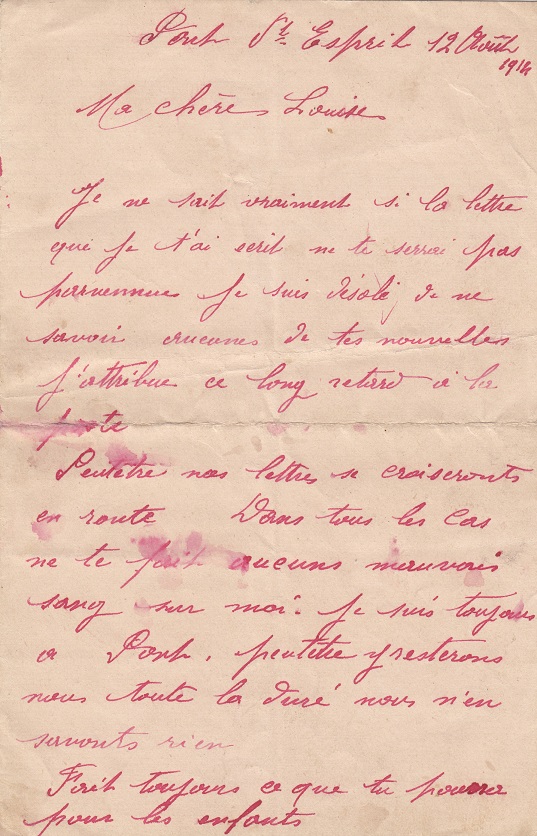 Pont St. Esprit 12 Août
1914
Ma chère Louise
Je ne sait vraiment si la lettre
que je t'ai ecrit ne te serrai pas
parvennue je suis désolé de ne
savoir aucunes de tes nouvelles
J'attribue ce long retard a la
poste
Peutetre nos lettres se croiseronts
en route Dans tous les cas
ne te fait aucuns mauvais
sang sur moi. je suis toujours
a Pont, peutetre y resterons
nous toute la duré nous n'en
savonts rien
Fait toujours ce que tu pourra
pour les enfants